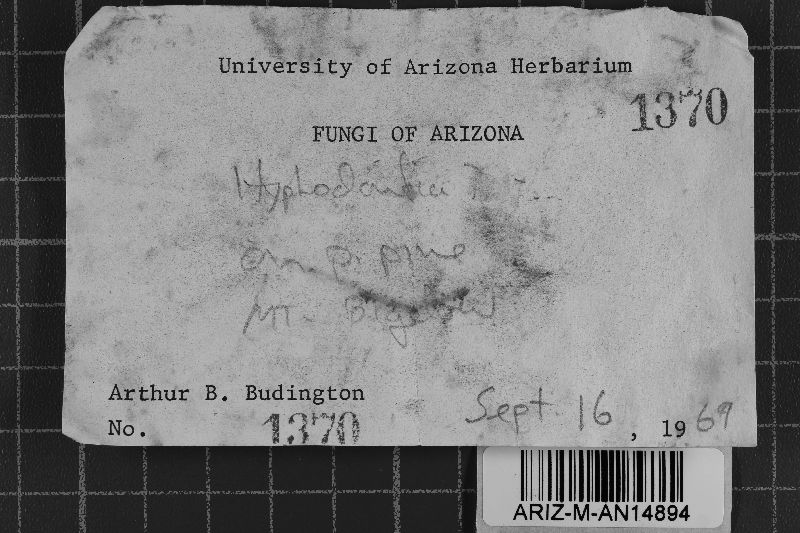 University of Arizona Herbarium
1370
FUNGI OF ARIZONA
Hyphodontia
on p. pine
Mt. Bigelow
Arthur B. Budington
No. 1370
Sept. 16, 1969
ARIZ-M-AN14894